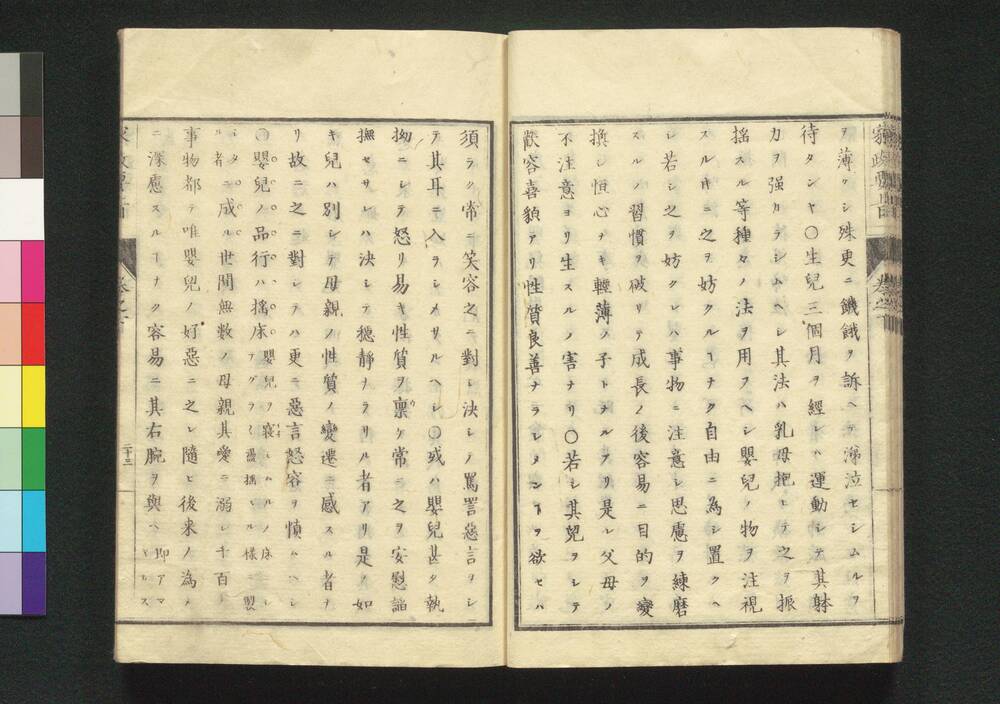 ヲ薄クシ殊更ニ饑餓ヲ訴ヘテ涕泣セシムルヲ
待タンヤ〇生兒三個月ヲ經レハ運動シテ其躰
力ヲ强カラシムヘシ其法ハ乳母抱ヒテ之ヲ振
搖スル等種々ノ法ヲ用フヘシ嬰兒ノ物ヲ注視
スル時ニ之ヲ妨クルヿナク自由ニ爲シ置クヘ
シ若シ之ヲ妨クレハ事物ニ注意シ思慮ヲ練磨
スルノ習慣ヲ破リテ成長ノ後容易ニ目的ヲ變
換シ恒心ナキ輕薄ノ子トナルヿアリ是レ父母ノ
不注意ヨリ生スルノ害ナリ〇若シ其兒ヲシテ
歡容喜貌アリ性質良善ナラシメンヿヲ欲セハ
須ラク常ニ笑容之ニ對シ決シテ罵詈惡言ヲシ
テ其耳ニ入ラシメサルヘシ〇或ハ嬰兒甚タ執
拗ニシテ怒リ易キ性質ヲ禀ケ常ニ之ヲ安慰謟
撫セサレハ決シテ穩靜ナラサル者アリ是ノ如
キ兒ハ別シテ母親ノ性質ノ變遷ニ感スル者ナ
リ故ニ之ニ對シテハ更ニ惡言怒容ヲ愼ムヘシ
〇嬰兒ノ品行ハ搖床嬰兒ヲ寢シムルノ床ニシテグラく盪搖スル樣ニ製
シタル者ニ成ル世間無数ノ母親其愛ニ溺レ千百ノ
事物都テ唯嬰兒ノ好惡ニ之レ隨ヒ後来ノ為メ
ニ深慮スルヿナク容易ニ其右腕ヲ與ヘ
二十三